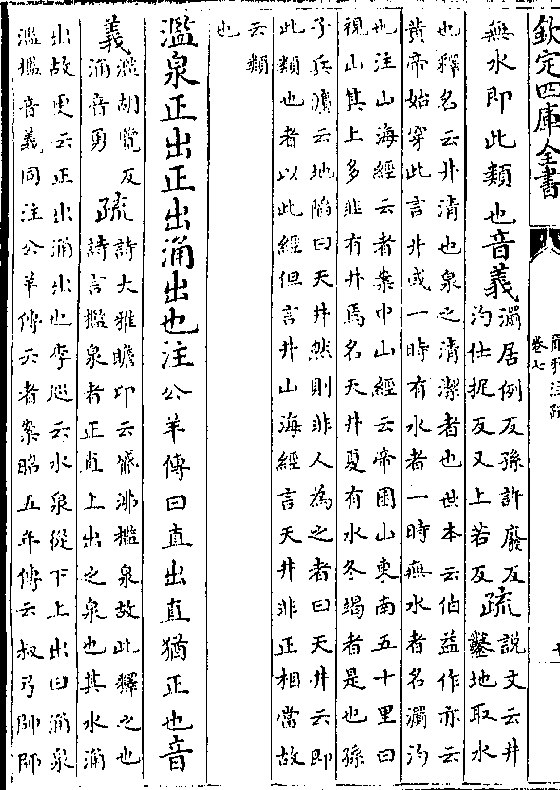 欽定四庫全書
卷七
無水即此類也音義
瀱居例反孫許廢反
汋仕捉反又上若反
疏
說文云井
鑿地取水
也釋名云井清也泉之清潔者也世本云伯益作亦云
黄帝始穿此言井或一時有水者一時無水者名瀱汋
也注山海經云者案中山經云帝囷山東南五十里曰
視山其上多韭有井焉名天井夏有水冬竭者是也孫
子兵灋云地陷曰天井然則非人為之者曰天井云即
此類也者以此經但言井山海經言天井非正相當故
云類
也
濫泉正出正出涌出也注公羊傳曰直出直猶正也音
義
濫胡覽反
涌音勇
疏
詩大雅瞻卬云觱沸檻泉故此釋之也
詩言檻泉者正直上出之泉也其水涌
出故更云正出涌出也李廵云水泉從下上出曰涌泉
濫檻音義同注公羊傳云者案昭五年傳云叔弓帥師